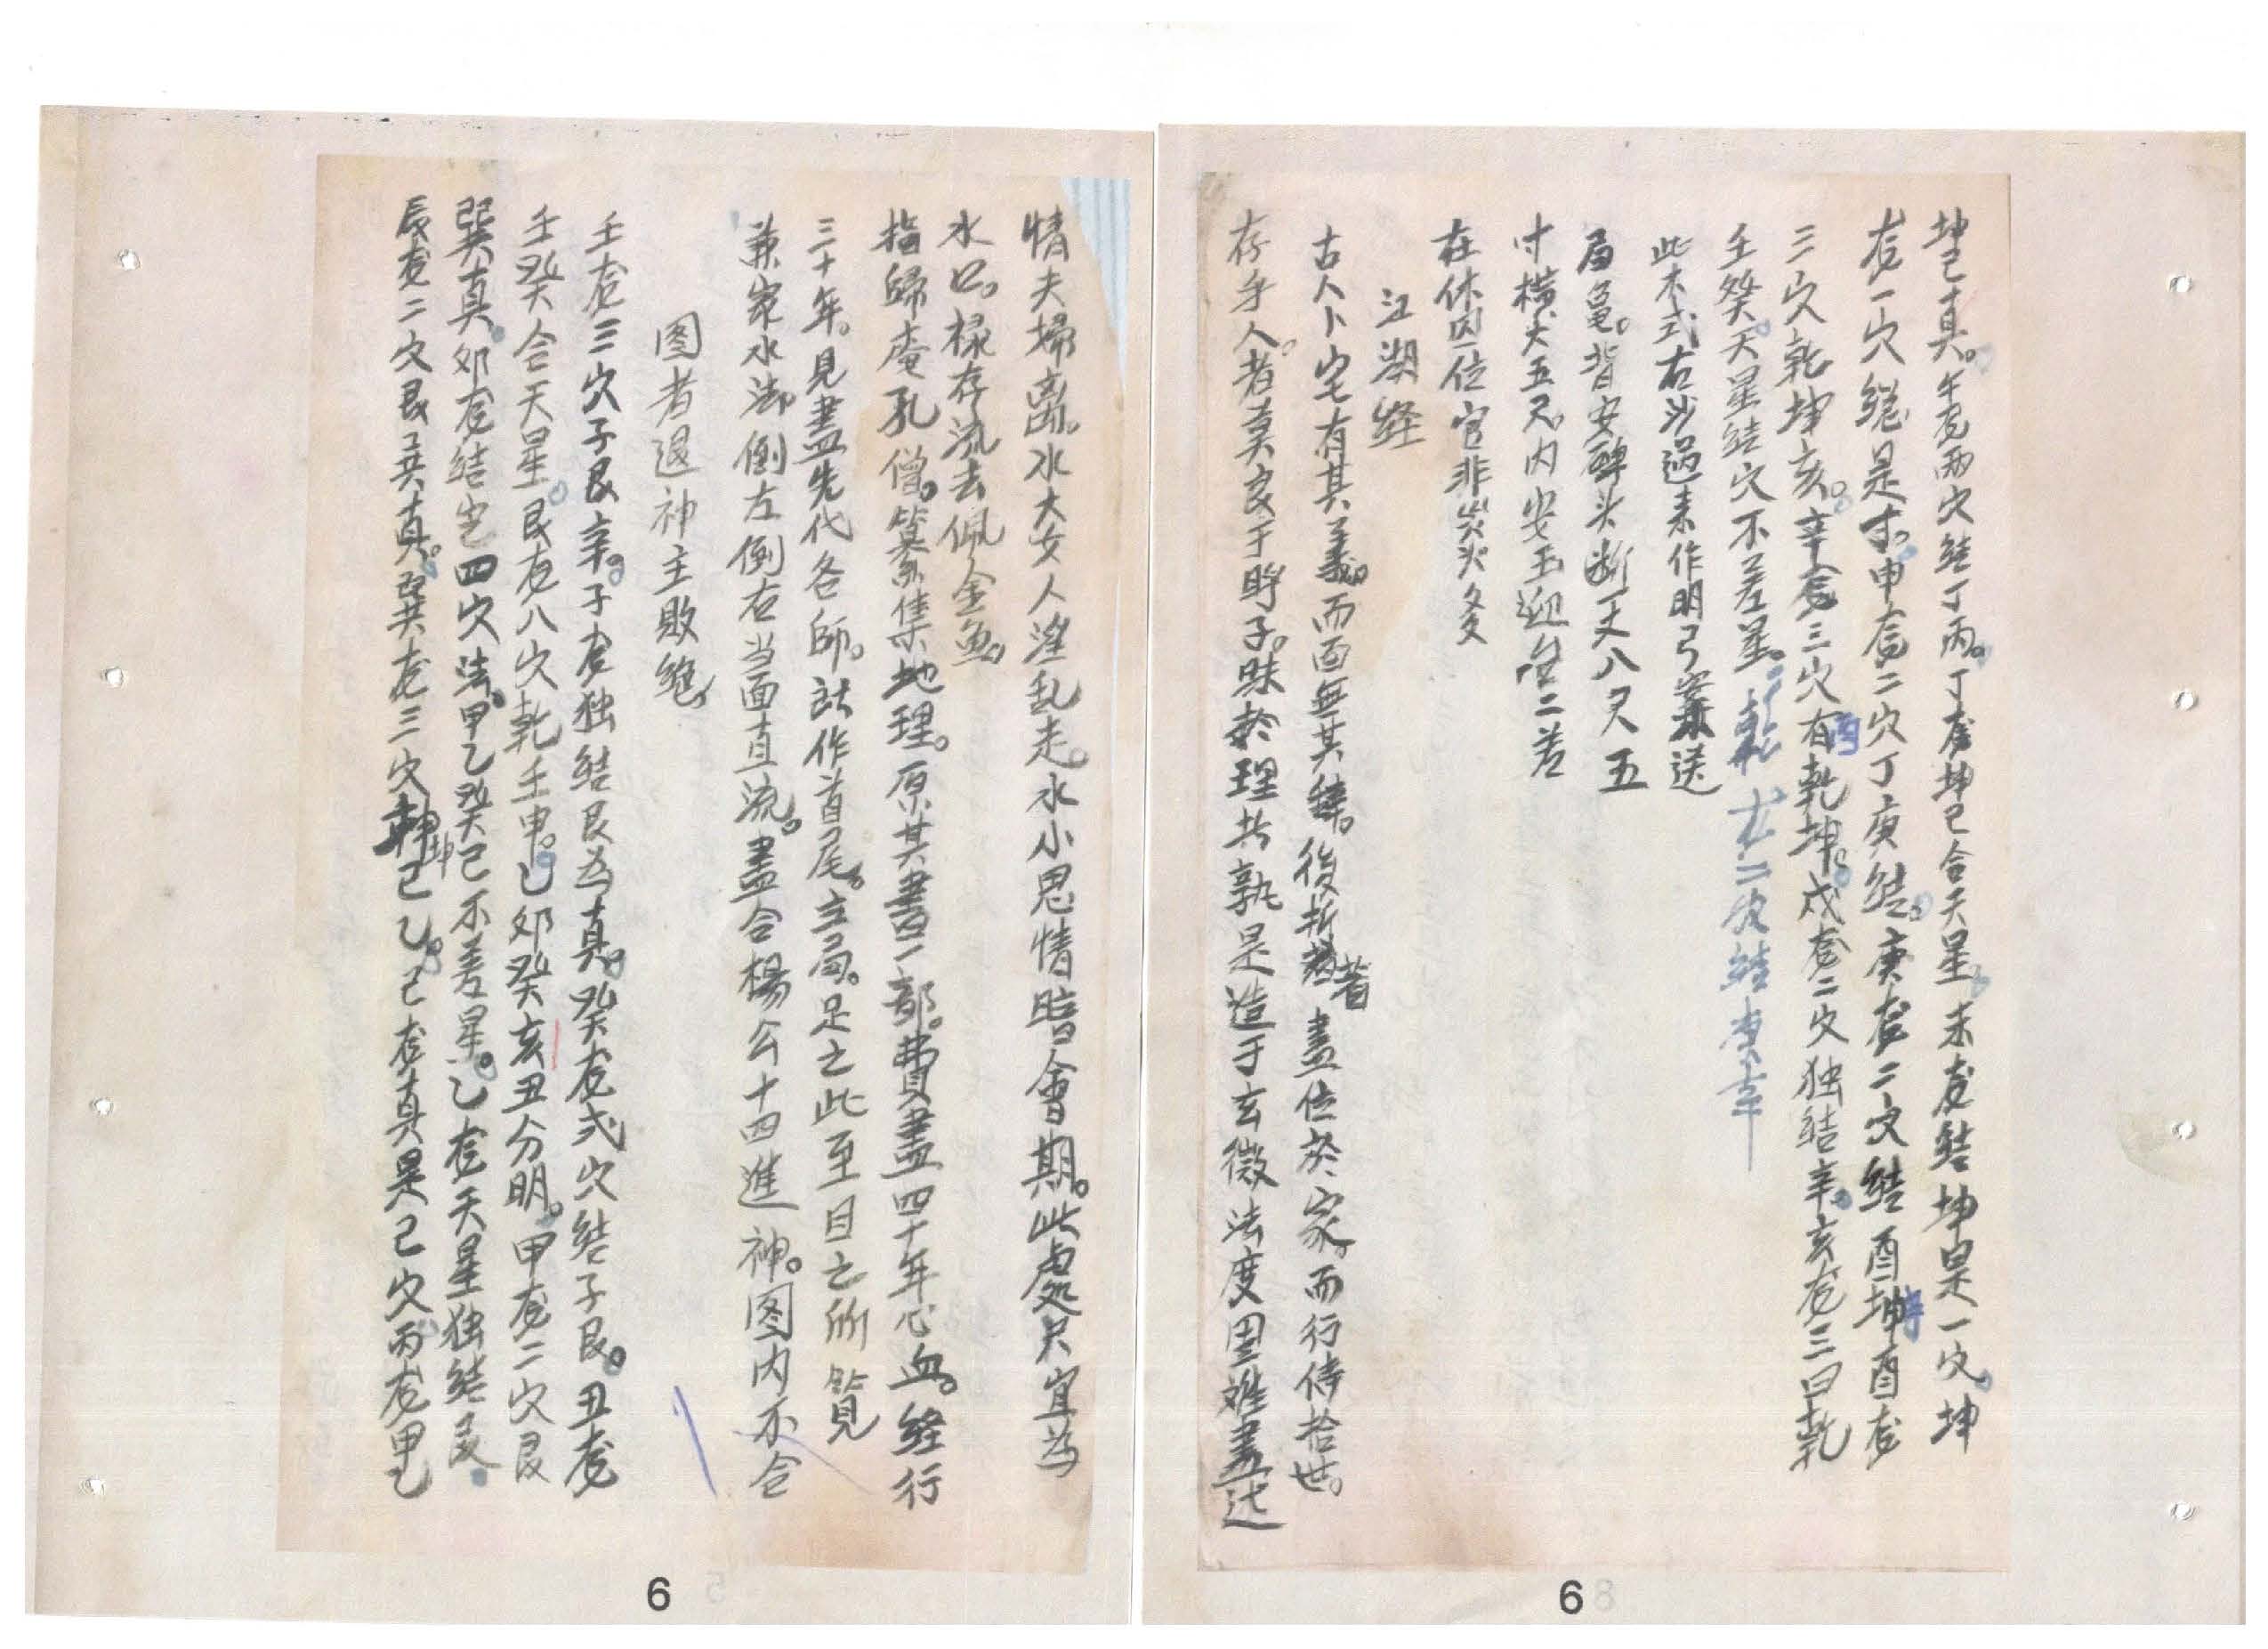 情夫婦离。水大女人淫乱走。水小思情暗會期。此處只宜为
水口。禄存流去佩金魚。
指歸庵孔僧。篡集地理。原其書一部。費盡四十年心血。经行
三十年。見盡先代各師。所作首尾。立局。足之此至目之所覽
兼家水法。倒左倒右当面直流。盡合楊公十四進神。图内不合
图者退神主敗絶
壬龙三穴子艮辛。子龙独结艮为真。癸龙弍穴结子艮。丑龙
壬癸合天星。艮龙八穴乾壬申。巳卯癸亥丑分明。甲龙二穴艮
巽真。卯龙结定四穴法。甲乙癸巳不差星。乙龙天星独结艮
辰龙二穴艮巽真。巽龙三穴坤巳乙。巳龙真是巳穴丙龙甲
坤巳真。午龙两穴结丁丙。丁龙坤巳合天星。未龙结坤是一穴。坤
龙一穴總是末。申龙二穴丁庚结。庚龙二穴结酉坤酉龙
三穴乾坤亥。辛龙三穴有丙乾坤。戌龙二穴独结辛。亥龙三曰乾
壬癸。天星结穴不差星。乾龙二穴结庚辛
此木式右沙過来作明弓案送
局龟。背安碑头断丈八尺五
寸橫大五尺。内安玉迎台二差
在休囚位官非災火爻
江湖经
古人卜宅有其義。而面無其緯。後哲著盡位於家。而行侍拾世。
存乎人。者莫良于眸子。昧於理其孰是造于玄微法度周難盡述